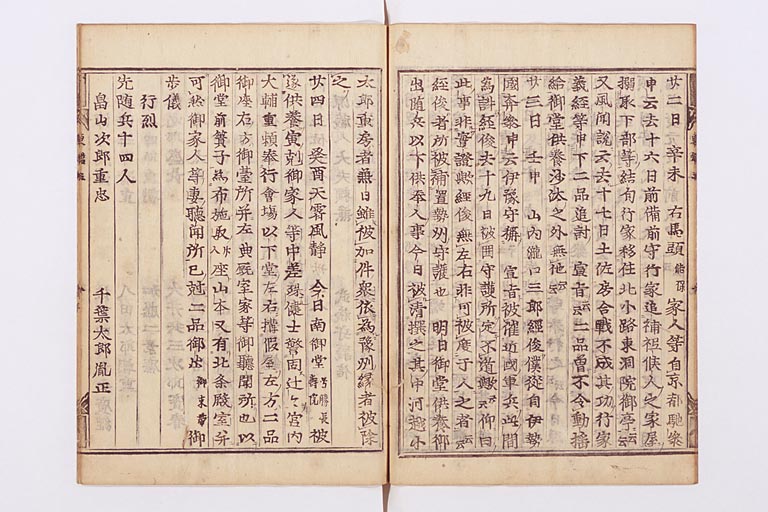 廿二日 辛未 右馬頭 能保 家人等自京都馳參
申云去十六日前備前守行家追捕祗候人之家屋
搦取下部等結句行家移住北小路東洞院御亭云云
又風聞說云去十七日土佐房合戰不成其功行家
義經等申下二品追討 宣旨云云二品曾不令動搖
給御堂供養沙汰之外無他云云
廿三日 壬申 山內瀧口三郎經俊僕從自伊勢
國奔參申云伊豫守稱 宣旨被催近國軍兵此間
為誅經俊去十九日被囲守護所定不遁歟云云仰曰
此事非實證歟經俊無左右非可被度于人之者云云
經俊者所被補置勢州守護也 明日御堂供養御
出隨兵以下供奉人事今日被清撰之其中河越小
太郎重房者兼日雖被加件衆依為豫州緣者被除
之
廿四日 癸酉天霽風靜 今日南御堂 号勝長壽院 被
遂供養寅剋御家人等中差殊健士警固辻々宮內
大輔重頼奉行會場以下堂左右搆假屋左方二品
御座右方御臺所并左典厩室家等御聽聞所也以
御堂前簀子為布施取 廿人 座山本又有北条殿室并
可然御家人等妻聽聞所巳剋二品御出 御束帶 御
步儀
行烈
先随兵十四人
畠山次郎重忠 千葉太郎胤正